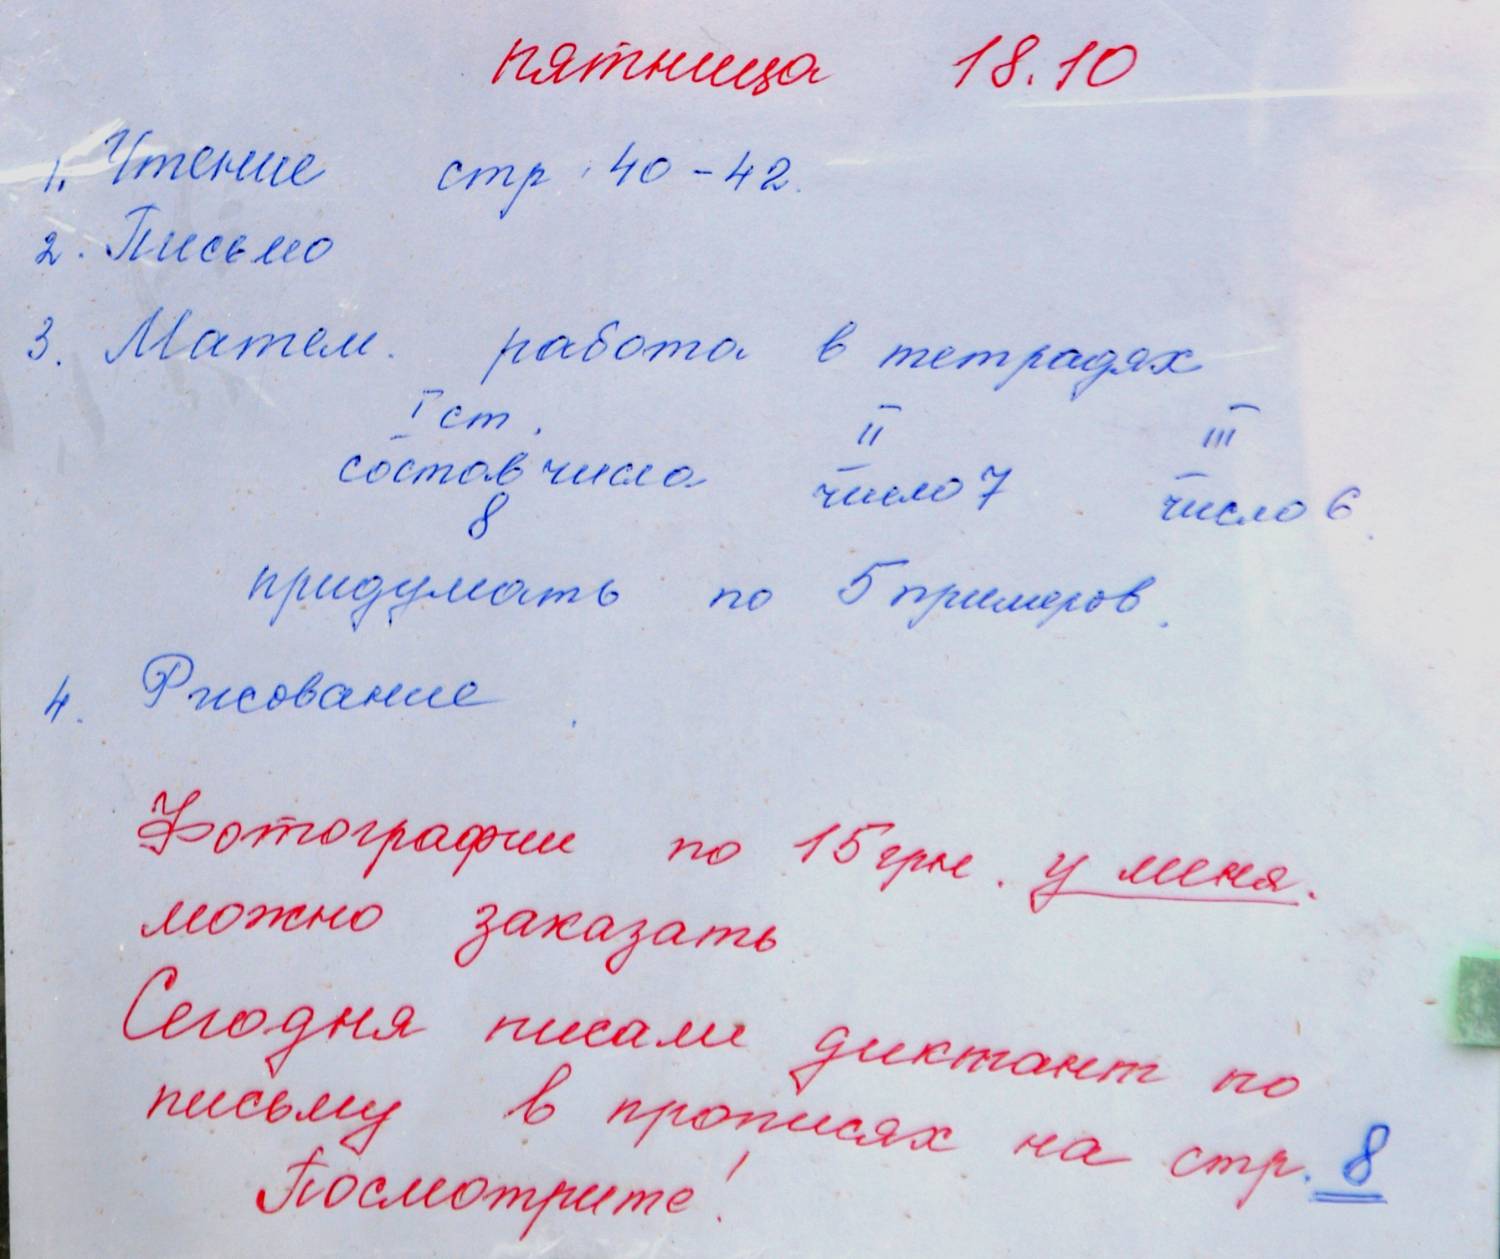 пятница 18.10
1. Чтение стр. 40-42.
2. Письмо
3. Матем. работа в тетрадях
I ст. II III
состав числа 8 число 7 число 6.
придумать по 5 примеров.
4. Рисование.
Фотографии по 15 грн. у меня.
можно заказать
Сегодня писали диктант по
письму в прописях на стр. 8
Посмотрите!